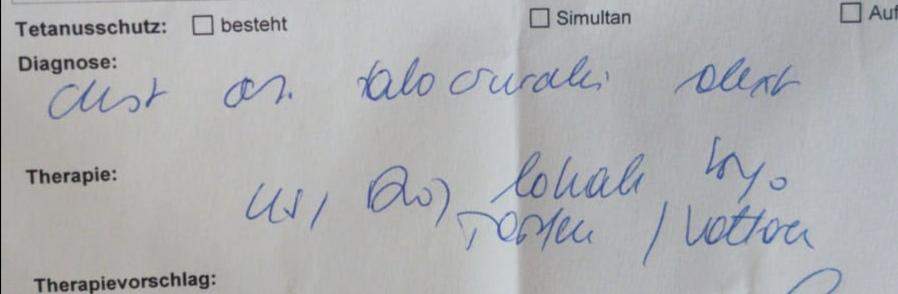 Tetanusschutz: besteht Simultan Auf
Diagnose:
Dist art. talo cruralis dext
Therapie:
US, Rö, lokale
/ Voltaren
Therapievorschlag: